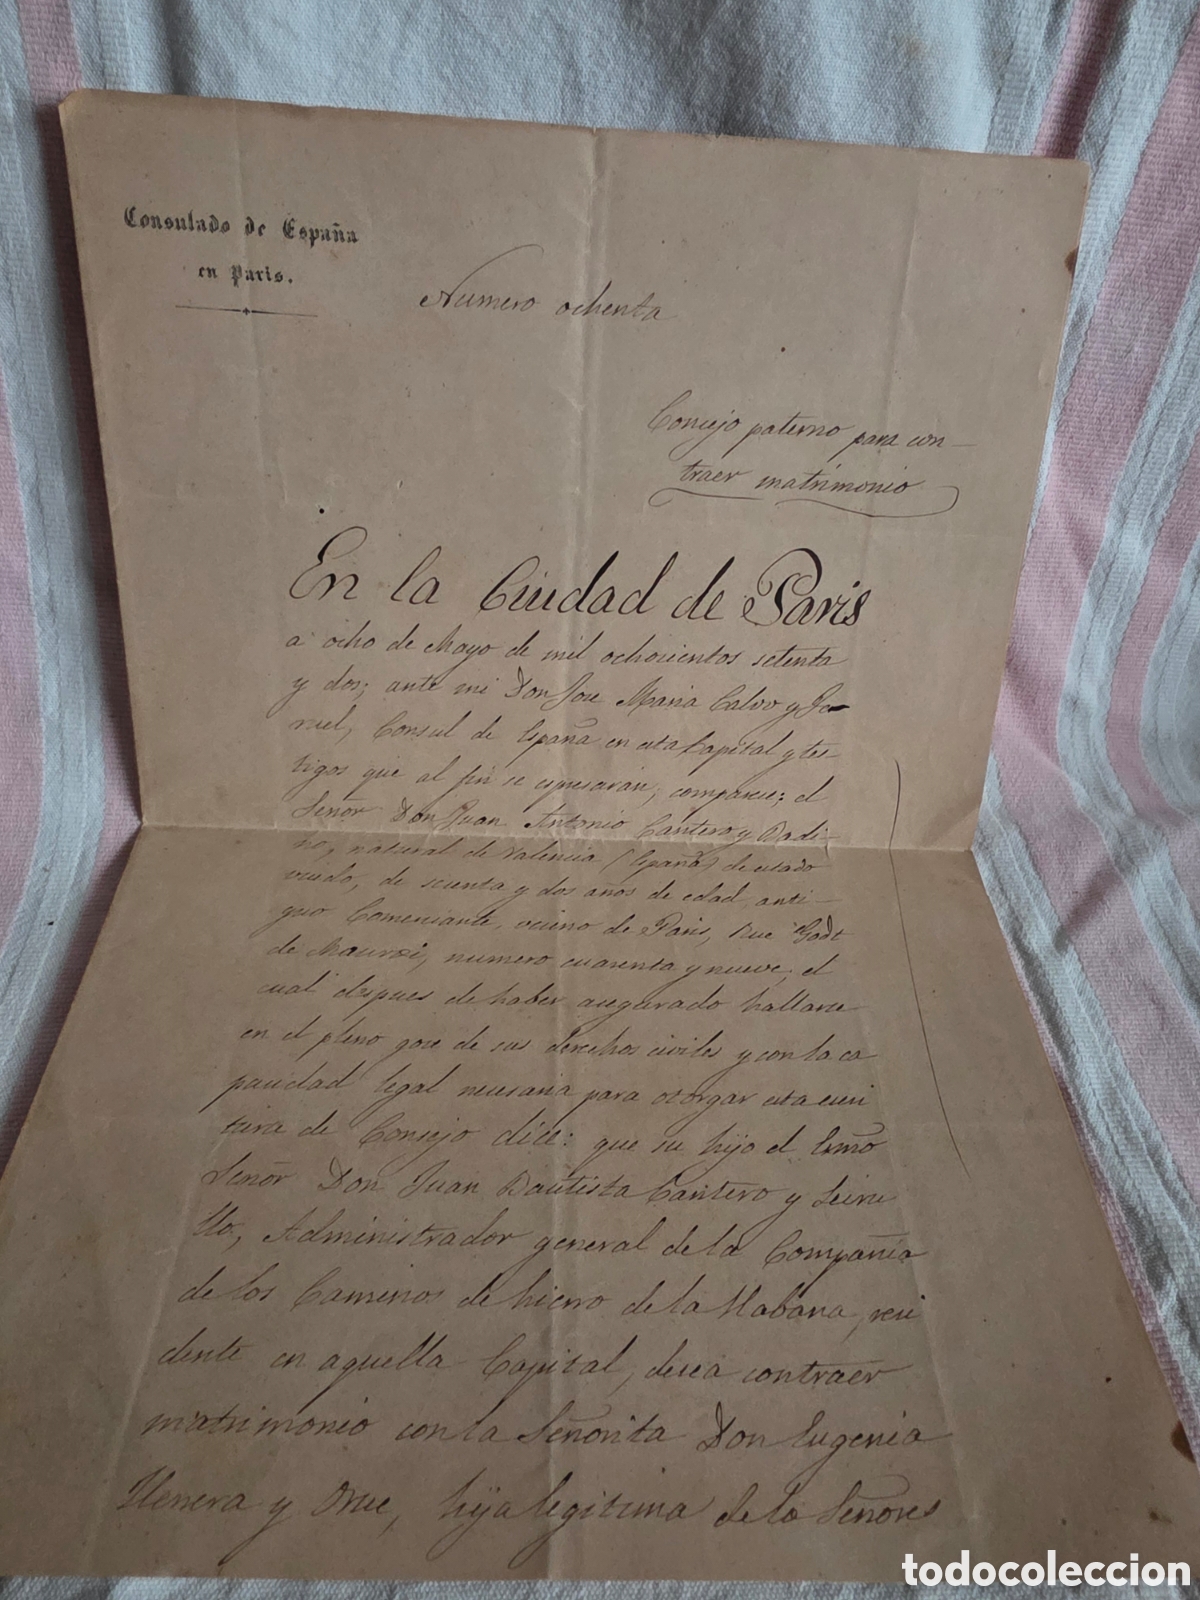 Consulado de España
en Paris.
Numero ochenta
Consejo paterno para con-
traer matrimonio
En la Ciudad de Paris
a ocho de Mayo de mil ochocientos setenta
y dos; ante mi Don Jose Maria Calvo y
ruel, Consul de España en esta Capital y tes-
tigos que al fin se espresarán, comparece; el
Señor Don Juan Antonio Cantero y Badi-
no, natural de Valencia (España) de estado
viudo, de sesenta y dos años de edad, anti-
guo Comerciante, vecino de Paris, rue Godt
de Mauroi, numero cuarenta y nueve; el
cual despues de haber asegurado hallarse
en el pleno goce de sus derechos civiles y con la ca
pacidad legal necesaria para otorgar esta escri
tura de Consejo dice: que su hijo el Exmo
Señor Don Juan Bautista Cantero y Seiru
llo, Administrador general de la Compañia
de los Caminos de hierro de la Habana, resi
dente en aquella Capital, desea contraer
matrimonio con la Señorita Don Eugenia
y Orue, hija legitima de los Señores
todocoleccion